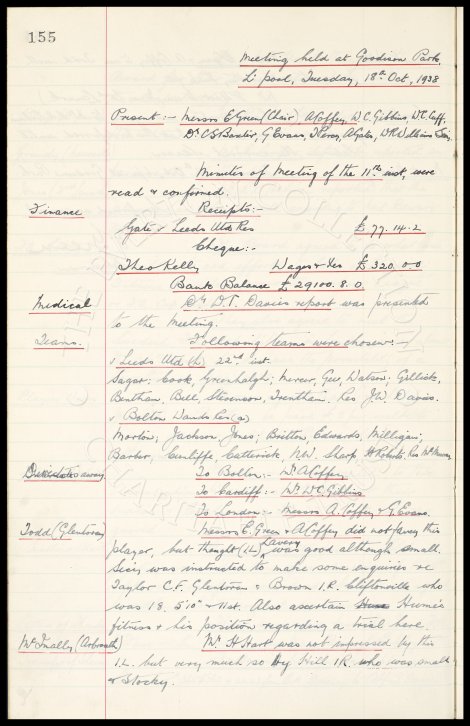 155
Meeting held at Goodison Park,
L'pool, Tuesday, 18th Oct, 1938
Present :- Messrs E. Green (Chair), A. Coffey, W.C. Gibbins, W.C. Cuff,
Dr C.S. Baxter, G. Evans, T. Percy, A. Gates, W.R. Williams
Minutes of Meeting of the 11th inst. were
read & confirmed.
Finance
Receipts :-
Gate v Leeds Utd Res £ 77. 14. 2
Cheque :-
Theo Kelly Wages & Xes £ 320. 0. 0
Bank Balance £ 29100. 8. 0.
Medical
Dr D.T. Davies report was presented
to the Meeting.
Teams.
Following teams were chosen :-
v Leeds Utd (h) 22nd inst.
Sagar; Cook, Greenhalgh; Mercer, Gee, Watson; Gillick,
Bentham, Bell, Stevenson, Trentham. Res J.W. Davies.
v Bolton Wands Res (a)
Morton; Jackson, Jones; Britton, Edwards, Milligan;
Barber, Cunliffe, Catterick, N.W. Sharp, H Roberts. Res
Directors away
To Bolton :- Mr A. Coffey
To Cardiff :- Mr W.C. Gibbins
To London :- Messrs A. Coffey & G. Evans.
Todd (Glentoran)
Messrs E. Green & A. Coffey did not favor this
player, but thought (I.L.) Lavery was good although small.
Secy was instructed to make some enquiries re
Taylor C.F. Glentoran & Brown I.R. Cliftonville who
was 18, 5'10" & 11st. Also ascertain Hume's
fitness & his position regarding a trial here.
(Arbroath)
Mr H Hart was not impressed by this
I.L. but very much so by Hill I.R. who was small
& stocky.